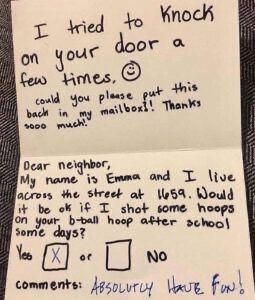 I tried to Knock
on your door a
few times. ☺
could you please put this
back in my mailbox!! Thanks
sooo much!
Dear neighbor,
My name is Emma and I live
across the street at 1659. Would
it be ok if I shot some hoops
on your b-ball hoop after school
some days?
Yes X or NO
comments: ABSOLUTLY HAVE FUN!